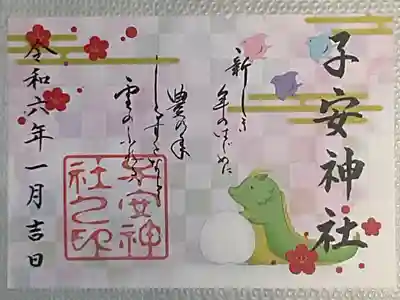 子安神社
新しき
年のはじめに
豊の年
しるすとならし
雪のふれるは
子安神
社之印
令和六年一月吉日